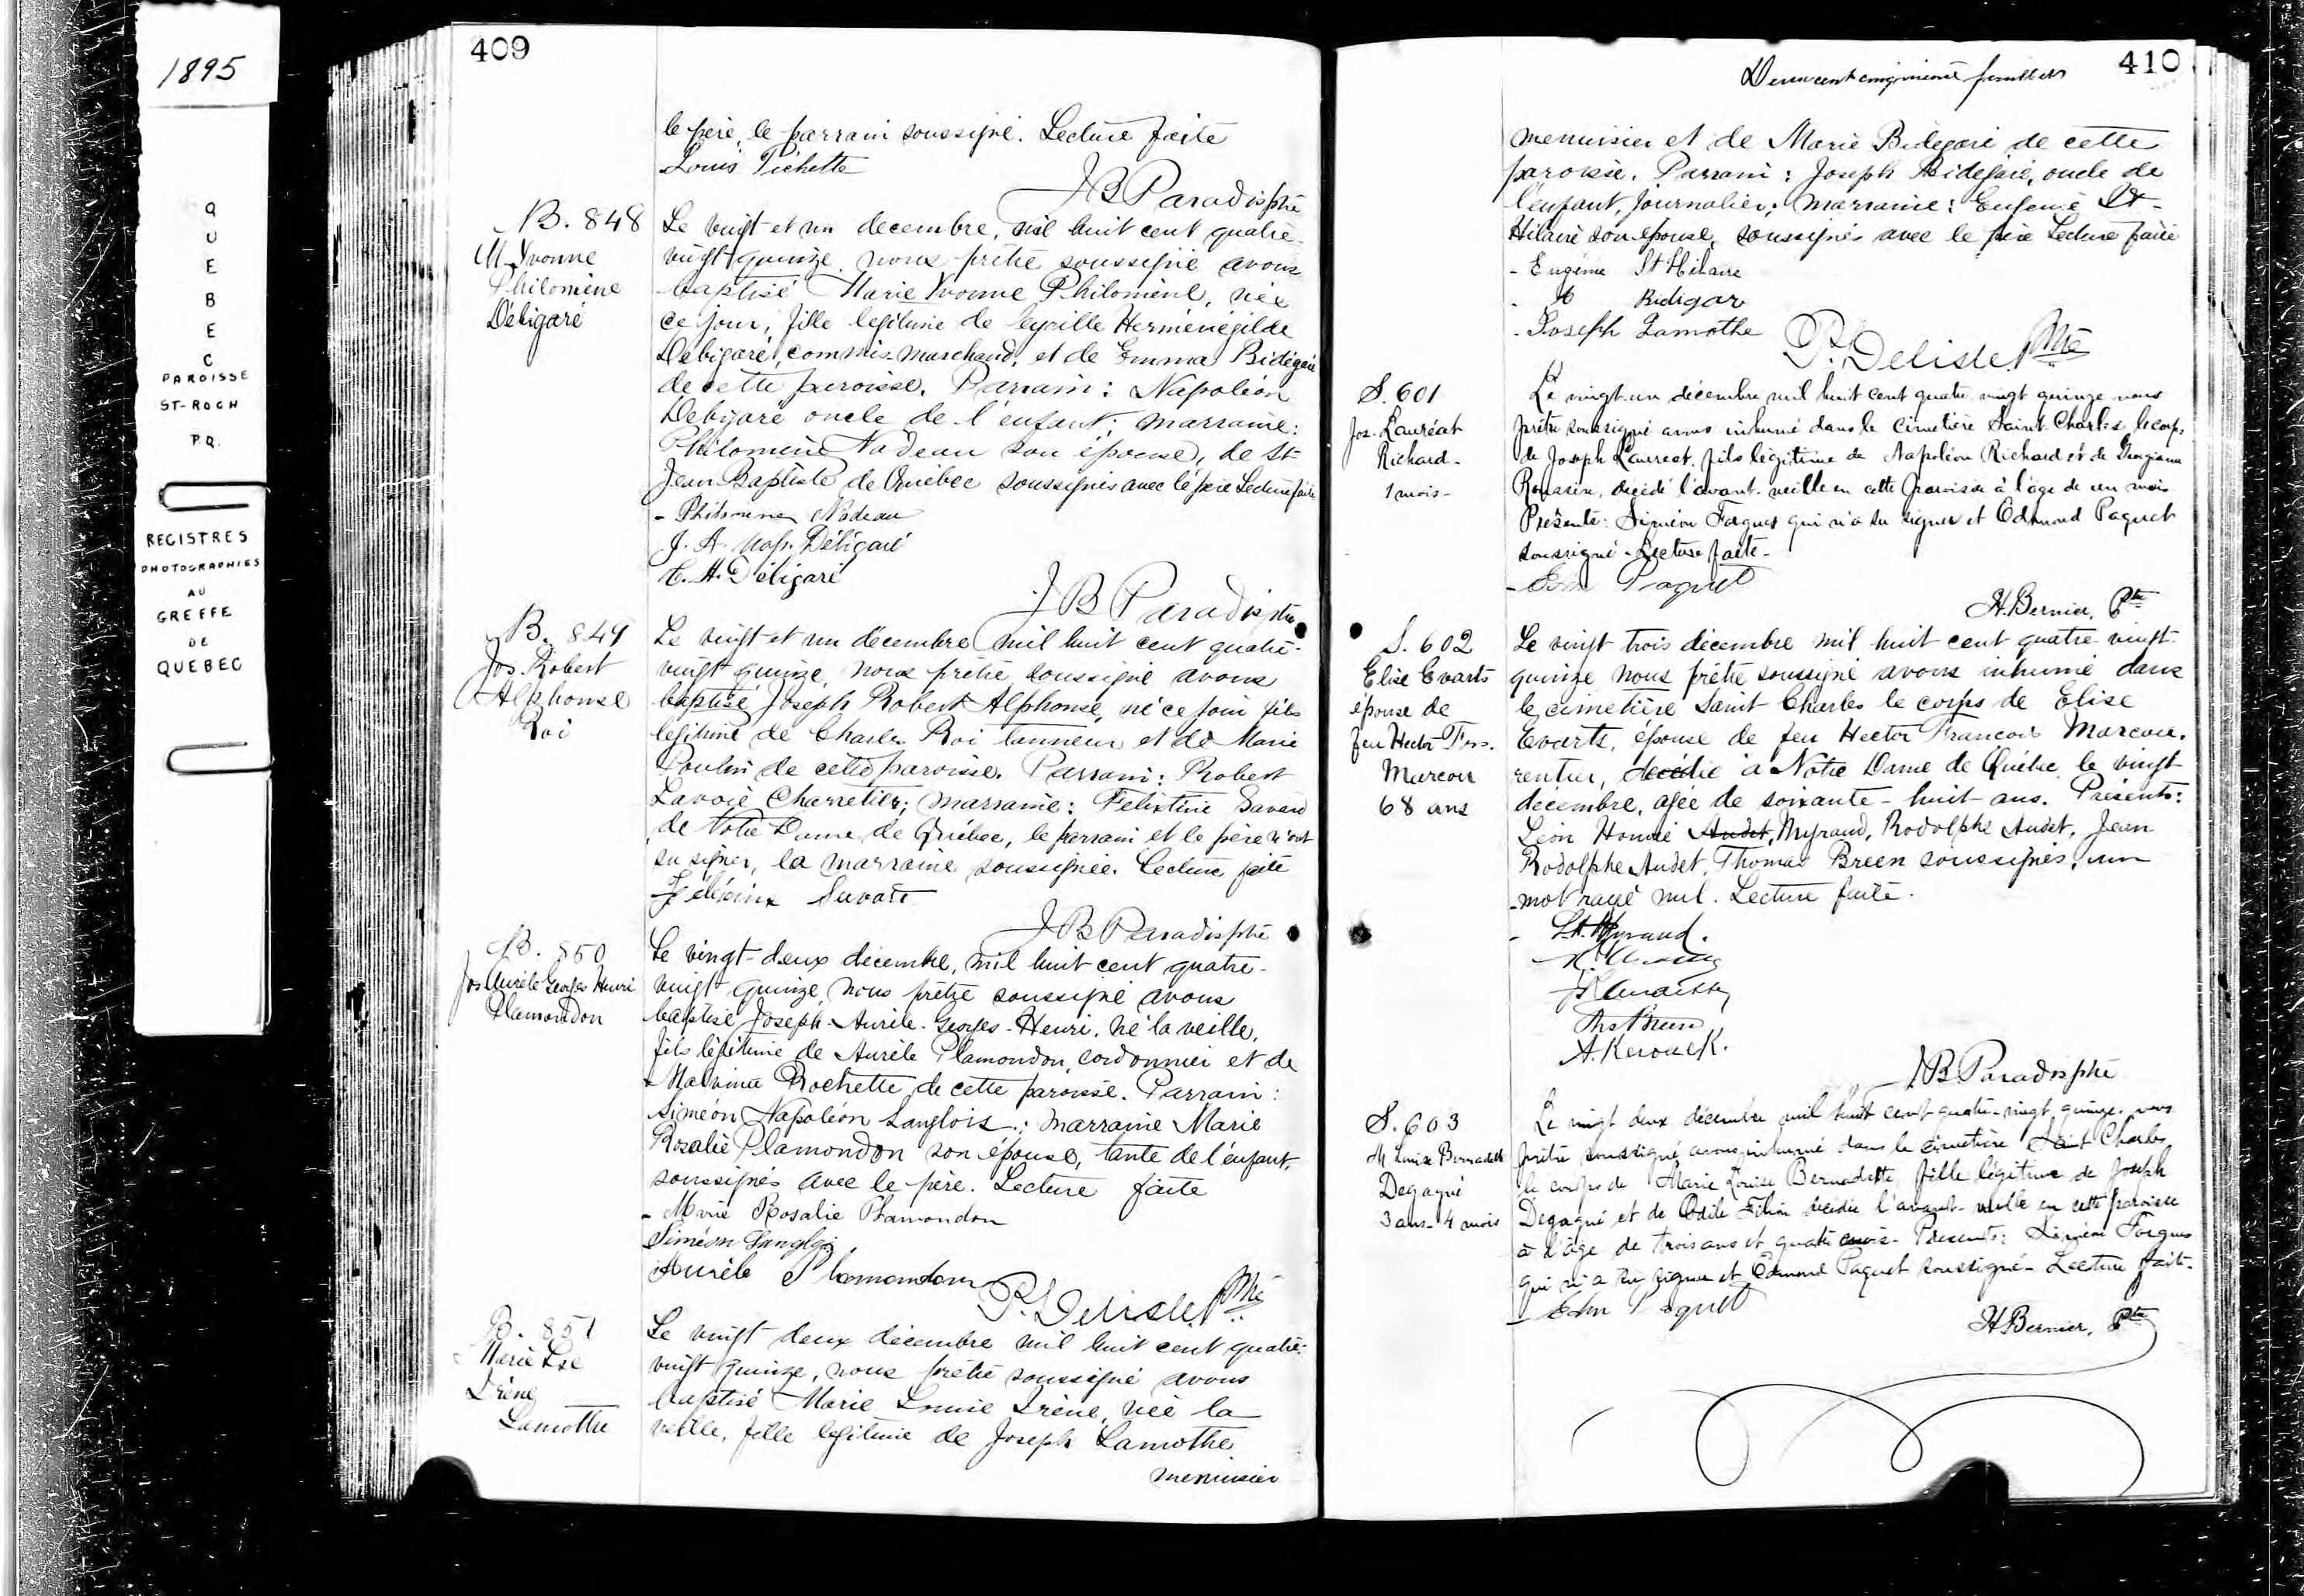 1895
QUEBEC
PAROISSE
ST-ROCH
P.Q.
REGISTRES
PHOTOGRAPHIES
AU
GREFFE
DE
QUEBEC
409
le père, le parrain soussigné. Lecture faite
Louis Pichette
JB Paradis ptre
B. 848
M. Yvonne
Philomène
Débigaré
Le vingt et un decembre, mil huit cent quatre-
vingt quinze, nous prêtre soussigné avons
baptisé Marie Yvonne Philomène, née
ce jour, fille légitime de Herménégilde
Débigaré, commis-marchand, et de Emma Bidégaré
de cette paroisse. Parrain: Napoléon
Debigaré oncle de l'enfant; marraine:
Philomène Nadeau son épouse, de St
Jean Baptiste de Québec soussignés avec le père Lecture faite
- Philomene Nadeau
J. A. Nap. Débigaré
C. H. Débigaré
JB Paradis ptre
B. 849
Jos. Robert
Alphonse
Roi
Le vingt et un décembre mil huit cent quatre-
vingt quinze, nous prêtre soussigné avons
baptisé Joseph Robert Alphonse, né ce jour fils
légitime de Charles Roi tanneur et de Marie
Poulin de cette paroisse. Parrain: Robert
Lavoie charretier; marraine: Felixtine Savard
de Notre Dame de Québec, le parrain et le père n'ont
su signer, la marraine soussignée. Lecture faite
JB Paradis ptre
B. 850
Jos Aurèle Georges Henri
Plamondon
Le vingt-deux décembre, mil huit cent quatre-
vingt quinze, nous prêtre soussigné avons
baptisé Joseph-Aurèle-Georges-Henri, né la veille,
fils légitime de Aurèle Plamondon, cordonnier et de
Malvina Rochette de cette paroisse. Parrain:
Siméon Napoléon Langlois; marraine Marie
Rosalie Plamondon son épouse, tante de l'enfant,
soussignés avec le père. Lecture faite
- Marie Rosalie Plamondon
Siméon Langlois
Aurèle Plamondon
P. Delisle Ptre
B. 851
Marie Lse
Irène
Lamothe
Le vingt deux décembre mil huit cent quatre-
vingt quinze, nous prêtre soussigné avons
baptisé Marie Louise Irène, née la
veille, fille légitime de Joseph Lamothe
menuisier
410
Deux cent cinquième feuillets
menuisier et de Marie Bidégaré de cette
paroisse. Parrain: Joseph Bidégaré, oncle de
l'enfant, journalier; marraine: Eugénie St-
Hilaire son épouse, soussignés avec le père Lecture faite
- Eugénie St Hilaire
Bidégaré
- Joseph Lamothe
P. Delisle Ptre
S. 601
Jos. Lauréat
Richard -
1 mois -
Le vingt-un décembre mil huit cent quatre vingt quinze nous
prêtre soussigné avons inhumé dans le cimetière Saint-Charles le corps
de Joseph Lauréat, fils légitime de Napoléon Richard et de Georgiana
Roussin, décédé l'avant-veille en cette paroisse à l'âge de un mois
Présents: Siméon Fargues qui n'a su signer et Edmond Paquet
soussigné - Lecture faite -
- Edm Paquet
H. Bernier, Ptre
S. 602
Elise Evarts
épouse de
feu Hector Frs.
Marcoux
68 ans
Le vingt trois décembre mil huit cent quatre-vingt-
quinze nous prêtre soussigné avons inhumé dans
le cimetière Saint Charles le corps de Elise
Evarts, épouse de feu Hector François Marcoux,
rentier, décédée à Notre Dame de Québec le vingt
décembre, agée de soixante-huit ans. Présents:
Léon Honoré Audet, Myrand, Rodolphe Audet, Jean
Rodolphe Audet, Thomas Breen soussignés, un
mot rayé nul. Lecture faite.
- L.H. Myrand.
Ths Breen
A. Kerouack.
JB Paradis ptre
S. 603
M Louise Bernadette
Degagné
3 ans - 4 mois
Le vingt deux décembre mil huit cent quatre-vingt quinze, nous
prêtre soussigné avons inhumé dans le cimetière Saint Charles,
le corps de Marie Louise Bernadette, fille légitime de Joseph
Degagné et de Odile Filion décédée l'avant-veille en cette paroisse
à l'âge de trois ans et quatre mois - Présents: Siméon Fargues
qui n'a su signer et Edmond Paquet soussigné - Lecture faite -
- Edm Paquet
H. Bernier, Ptre